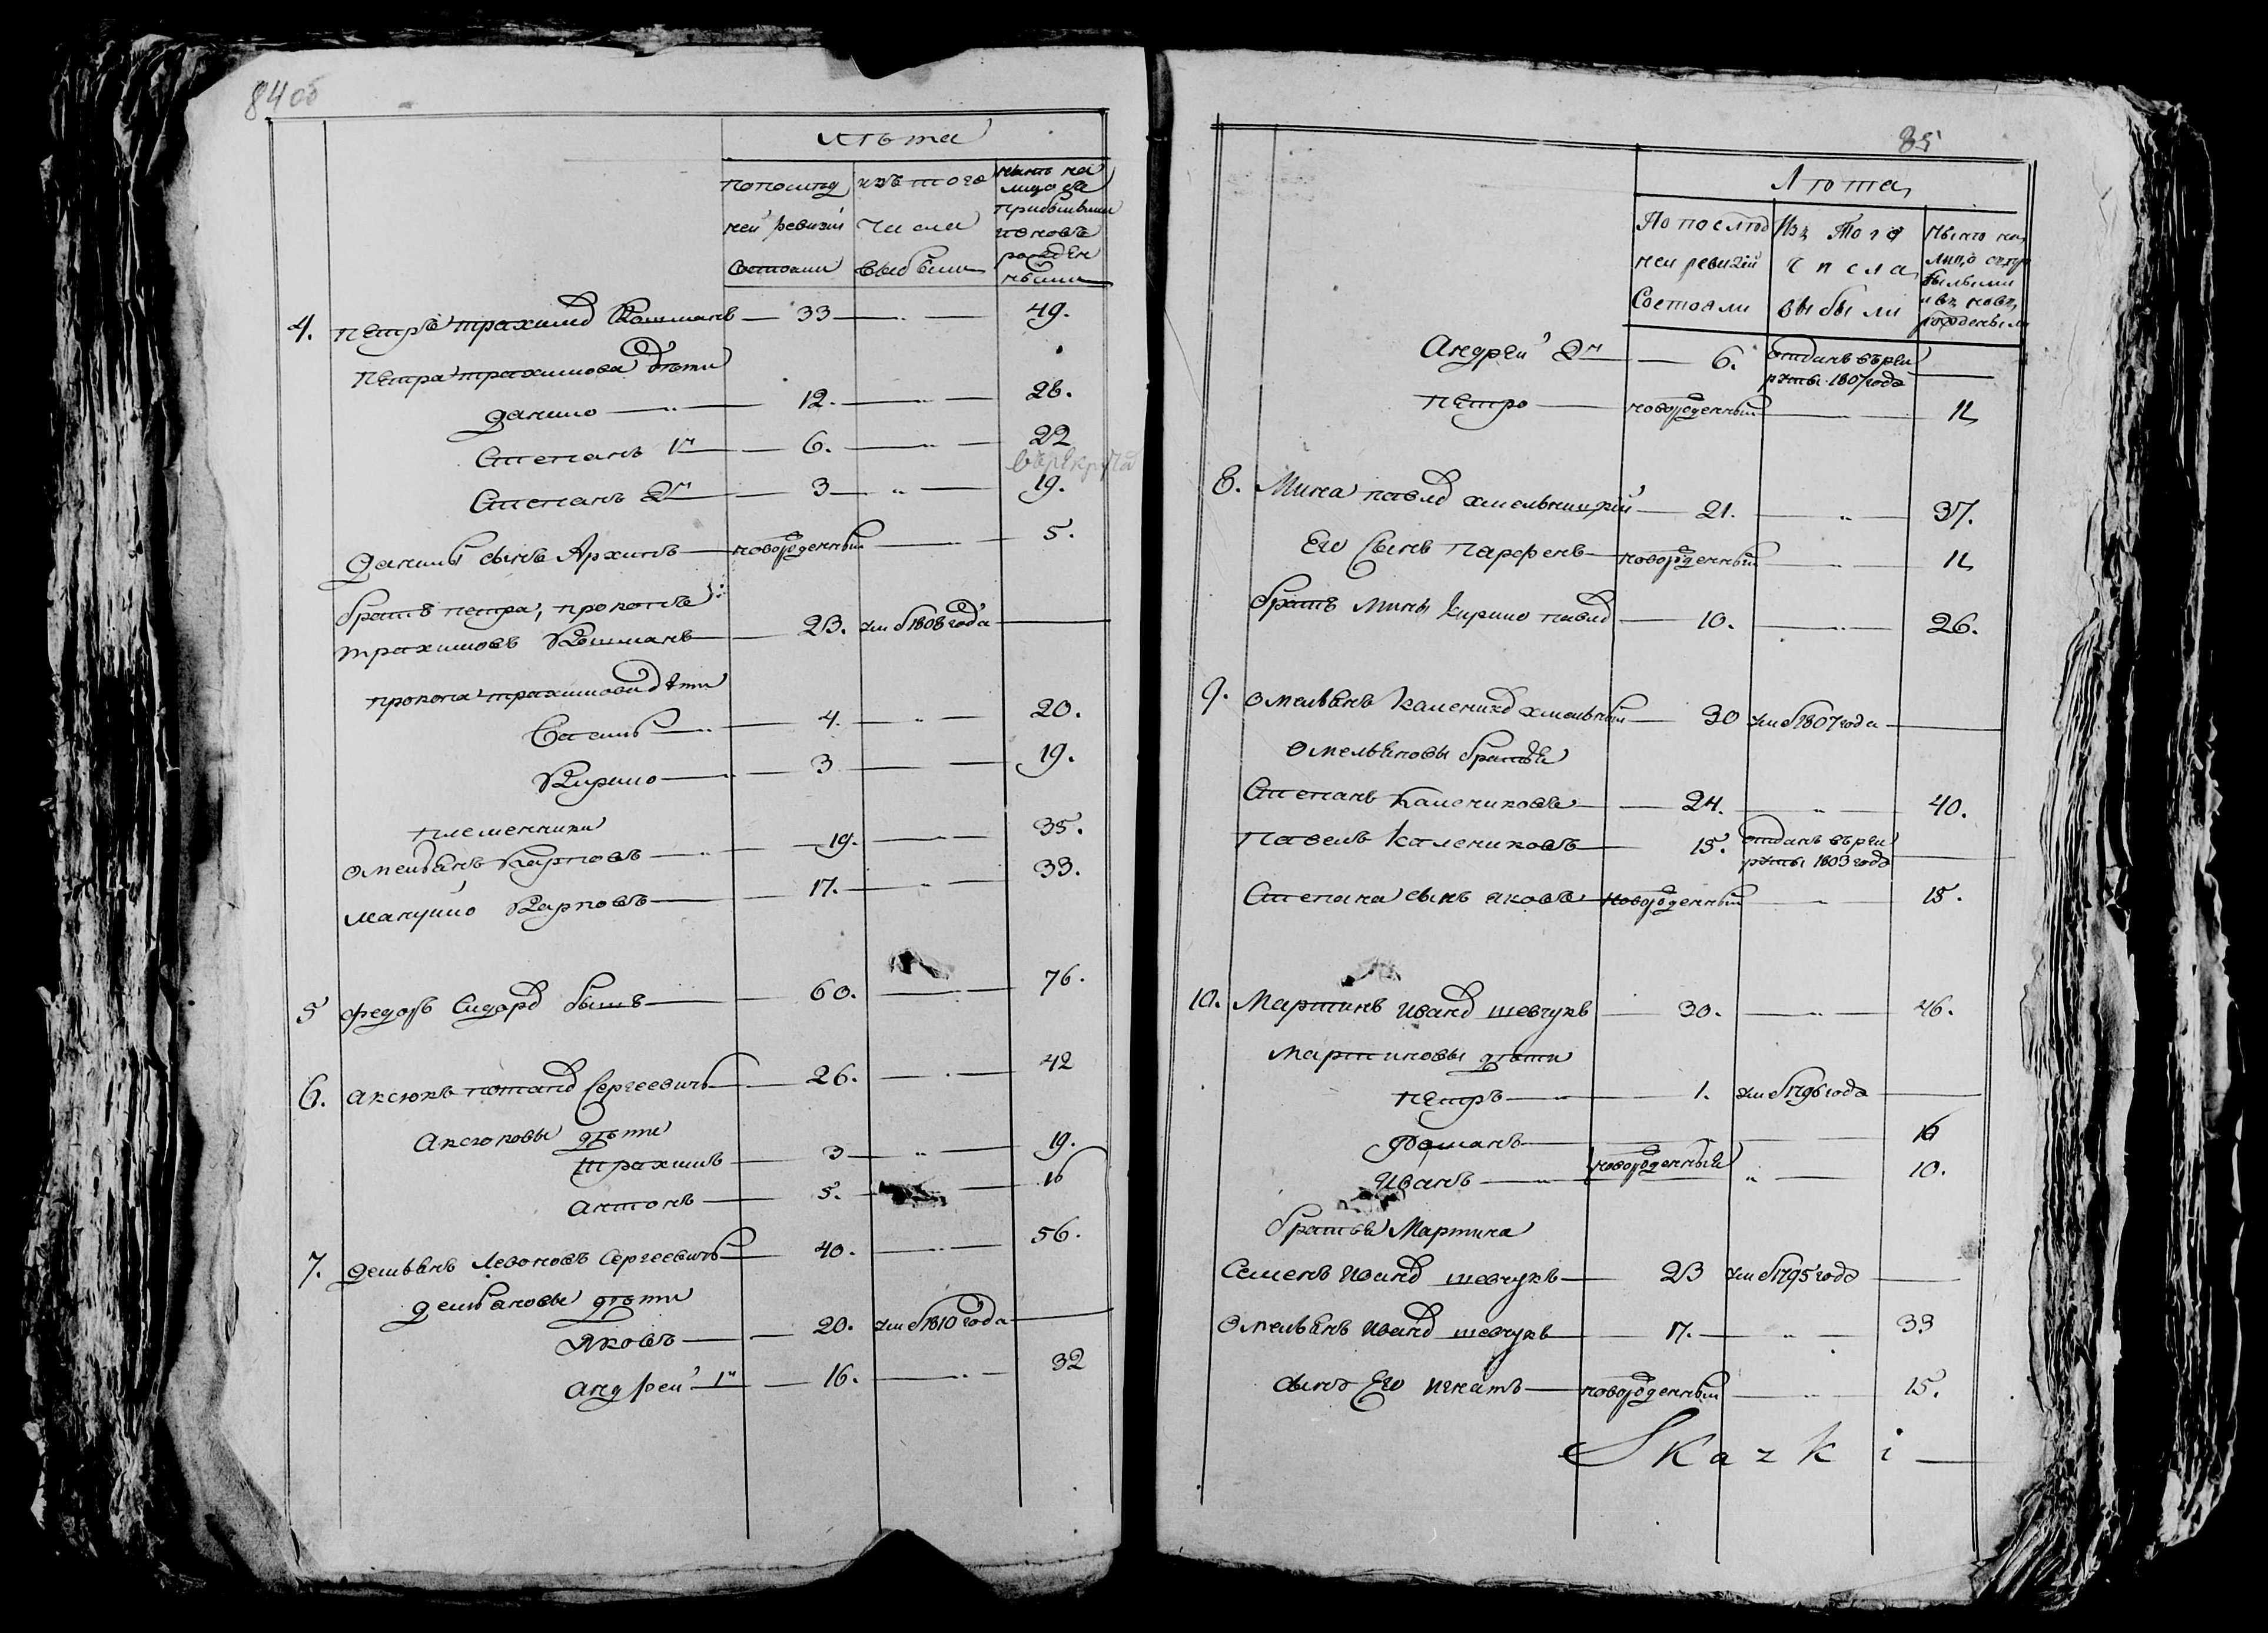 84 об
лѣта
по послед
ней ревизіи
состояли
изъ того
числа
выбыли
нынѣ на
лицо съ
прибылыми
и вновь
рожден
ными
4. Петръ Трахимо в Кошманъ — 33 — „ — 49.
Петра Трахимова дѣти
Данило — „ — 12. — „ — 28.
Степанъ 1й — 6. — „ — 22
въ рекрута
Степанъ 2й — 3 — „ — 19.
Данилы сынъ Архипъ — новорожденный — „ — 5.
братъ Петра, Прокопъ
Трахимовъ Кошманъ — 23. умеръ 1808 года —
Прокопа Трахимова дѣти
Василь — „ — 4. — „ — 20.
Кирило — „ — 3 — „ — 19.
племенники
Омельянъ Карповъ — „ — 19. — „ — 35.
Мануйло Карповъ — 17. — „ — 33.
5 Федоръ Сидоров — 60. — „ — 76.
6. Аксюкъ Потапов Сергеевичъ — 26. — „ — 42
Аксюковы дѣти
Трахимъ — 3 — „ — 19.
Антонъ — 5. — „ — 16
7. Демьянъ Левоновъ Сергеевичъ — 40. — „ — 56.
Демьяновы дѣти
Яковъ — 20. умеръ 1810 года —
Андрей 1й — 16. — „ — 32
85
Лѣта
По послѣд
ней ревизіи
Состояли
Изъ Того
числа
выбыли
Нынѣ на
лицо съ при
былыми
и въ новь
рожденными
Андрей 2й — 6. отданъ въ рек
руты 1807 года —
Петро — новорожденный — „ — 12
8. Мина Павлов Хмельницкій — 21. — „ — 37.
Его Сынъ Парфенъ — новорожденный — „ — 12
братъ Мины Кирило Павлов — 10. — „ — 26.
9. Омельянъ Каленико в Хмельный — 30 умеръ 1807 года —
Омельяновы братья
Степанъ Калениковъ — 24. — „ — 40.
Павелъ Калениковъ — 15. отданъ въ рек
руты 1803 года —
Степана сынъ Яковъ — новорожденный — „ — 15.
10. Мартинъ Иванов Шевчукъ — 30. — „ — 46.
Мартиновы дѣти
Петръ — „ — 1. умеръ 1796 года —
Романъ — 16
новорожденныи
Иванъ — „ — „ — 10.
братья Мартина
Семенъ Иванов Шевчукъ — 23 умеръ 1795 года —
Омельянъ Иванов Шевчукъ — 17. — „ — 33
сынъ Его Игнатъ — новорожденный — „ — 15.
Skazki —